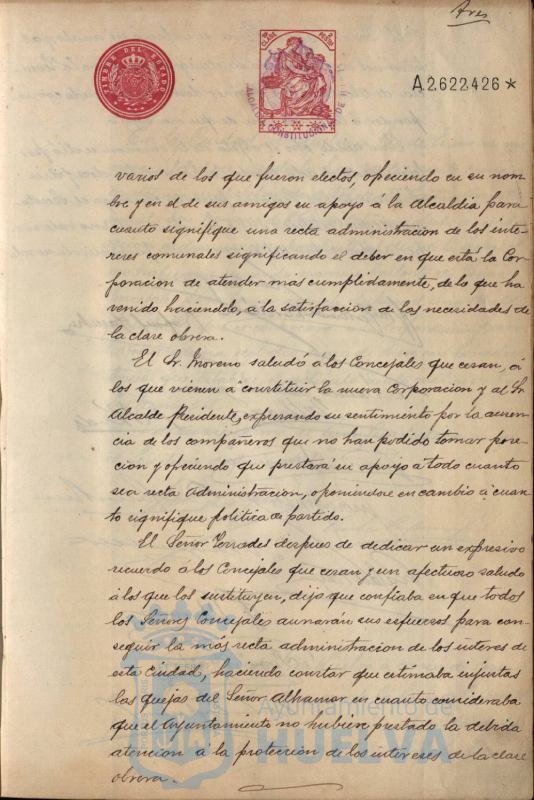 Tres
TIMBRE DEL ESTADO
CLASE 2 PESETAS
ALCALDIA CONSTITUCIONAL DE
A.2.622.426 *
varios de los que fueron electos, ofreciendo en su nom-
bre y en el de sus amigos su apoyo á la Alcaldia para
cuanto signifique una recta administracion de los inte-
reses comunales significando el deber en que está la Cor-
poracion de atender más cumplidamente, de lo que ha
venido haciendolo, á la satisfaccion de las necesidades de
la clase obrera.
El Sr. Moreno saludó á los Concejales que cesan, á
los que vienen á constituir la nueva Corporacion y al Sr.
Alcalde Presidente, expresando su sentimiento por la ausen-
cia de los compañeros que no han podido tomar pose-
cion y ofreciendo que prestará su apoyo a todo cuanto
sea recta administracion, oponiendose en cambio á cuan-
to signifique política de partido.
El Señor Terrades despues de dedicar un expresivo
recuerdo á los Concejales que cesan y un afectuoso saludo
á los que los sustituyen, dijo que confiaba en que todos
los Señores Concejales aunarán sus esfuerzos para con-
seguir la más recta administracion de los interes de
esta Ciudad, haciendo constar que estimaba injustas
las quejas del Señor Alhamar en cuanto consideraba
que el Ayuntamiento no hubiese prestado la debida
atencion á la proteccion de los intereses de la clase
obrera.
Ayuntamiento de
HUELVA